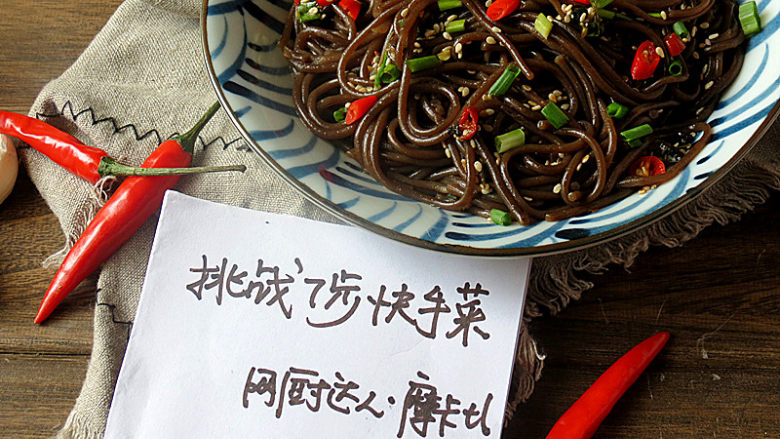 挑战7步快手菜
网厨达人·摩卡七